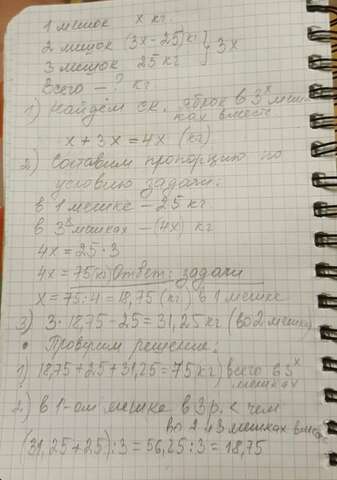 1 мешок x кг.
2 мешок (3x-25)кг } 3x
3 мешок 25 кг
Всего - ? кг
1) Найдём ск. яблок в 3х меш-
ках вместе
x + 3x = 4x (кг)
2) Составим пропорцию по
условию задачи:
в 1 мешке - 25 кг
в 3х мешках - (4x) кг
4x = 25 · 3
4x = 75(кг) Ответ: задачи
x = 75:4 = 18,75 (кг) в 1 мешке
3) 3·18,75 - 25 = 31,25 кг (во 2 мешке)
• Проверим решение:
1) 18,75 + 25 + 31,25 = 75 кг) всего в 3х
мешках
2) в 1-ом мешке в 3 р. < чем
во 2 и 3 мешках вместе
(31,25 + 25) : 3 = 56,25 : 3 = 18,75